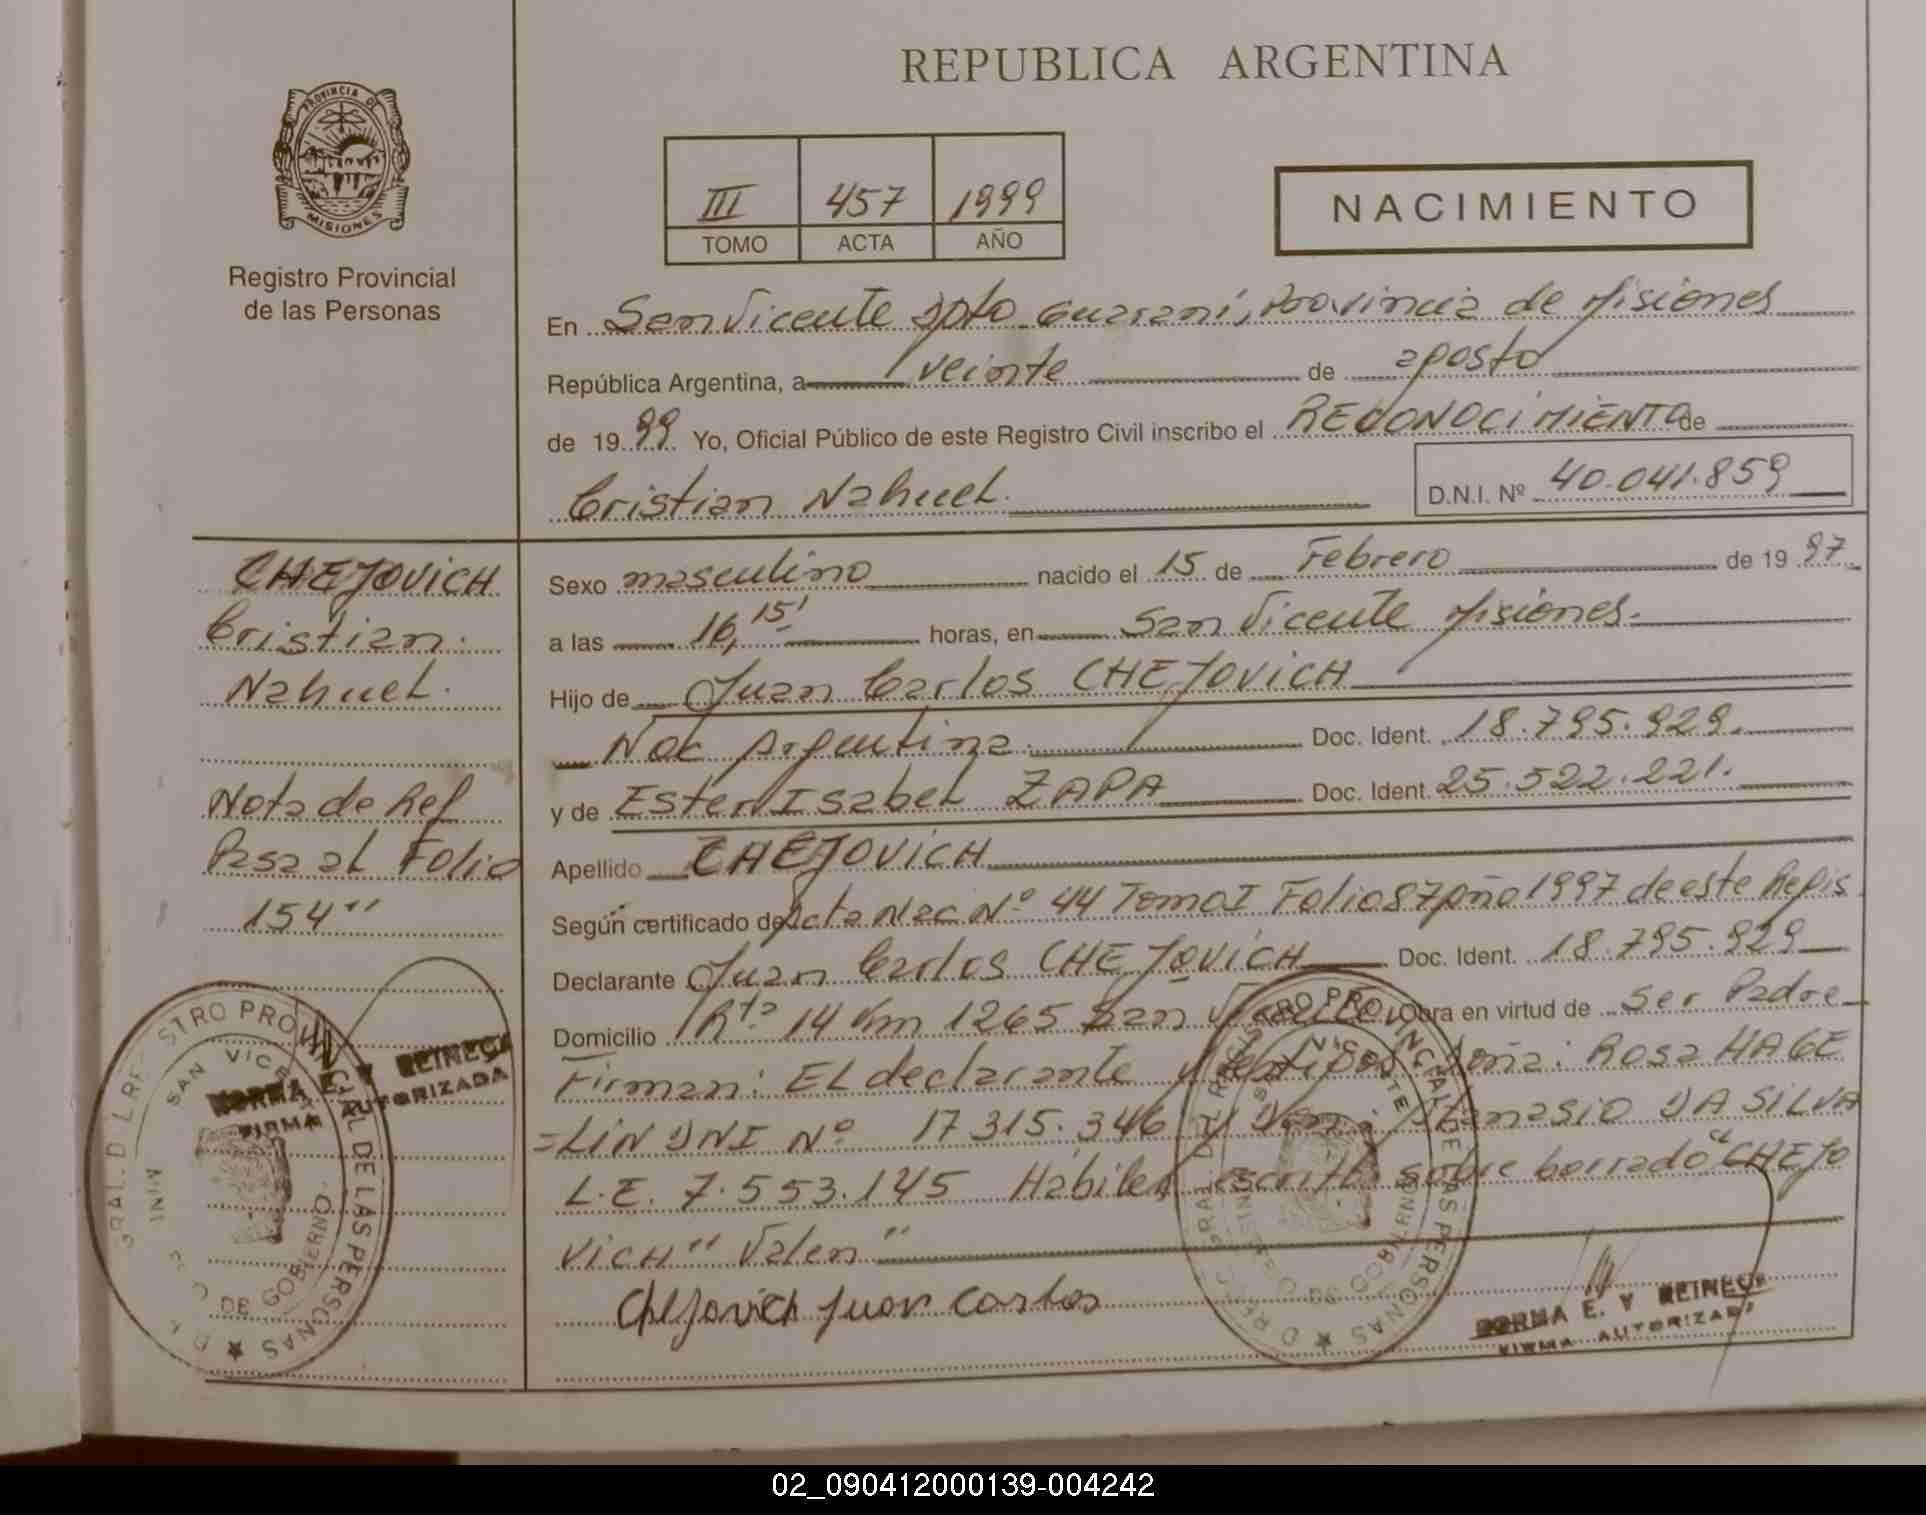 REPUBLICA ARGENTINA
PROVINCIA DE
MISIONES
Registro Provincial
de las Personas
III 457 1999
TOMO ACTA AÑO
NACIMIENTO
En San Vicente Dpto Guaraní, Provincia de Misiones
República Argentina, a veinte de agosto
de 1999 Yo, Oficial Público de este Registro Civil inscribo el RECONOCIMIENTO de
Cristian Nahuel.
D.N.I. Nº 40.041.859
CHEJOVICH
Cristian.
Nahuel.
Nota de Ref
Pasa al Folio
154"
Sexo masculino nacido el 15 de Febrero de 1997
a las 16,15' horas, en San Vicente Misiones.
Hijo de Juan Carlos CHEJOVICH
Nac Argentina. Doc. Ident. 18.795.929.
y de Ester Isabel ZAPA Doc. Ident. 25.522.221.
Apellido CHEJOVICH
Según certificado de Acta Nac Nº 44 Tomo I Folio 87 Año 1997 de este Regis
Declarante Juan Carlos CHEJOVICH Doc. Ident. 18.795.929
Domicilio Rta 14 Km 1265 San Vicente Obra en virtud de Ser Padre
Firman: El declarante y testigos Doña: Rosa HAGE
=LIN DNI Nº 17.315.346 y Don: Atanasio DA SILVA
L.E. 7.553.145 Hábiles escrito sobre borrado "CHEJO
VICH" Valen"
Chejovich Juan Carlos
REGISTRO PROVINCIAL DE LAS PERSONAS
SAN VICENTE
DE GOBIERNO
NORMA E. Y REINECA
FIRMA AUTORIZADA
REGISTRO PROVINCIAL DE LAS PERSONAS
VICENTE
DE GOBIERNO
NORMA E. Y REINECA
FIRMA AUTORIZADA
02_090412000139-004242